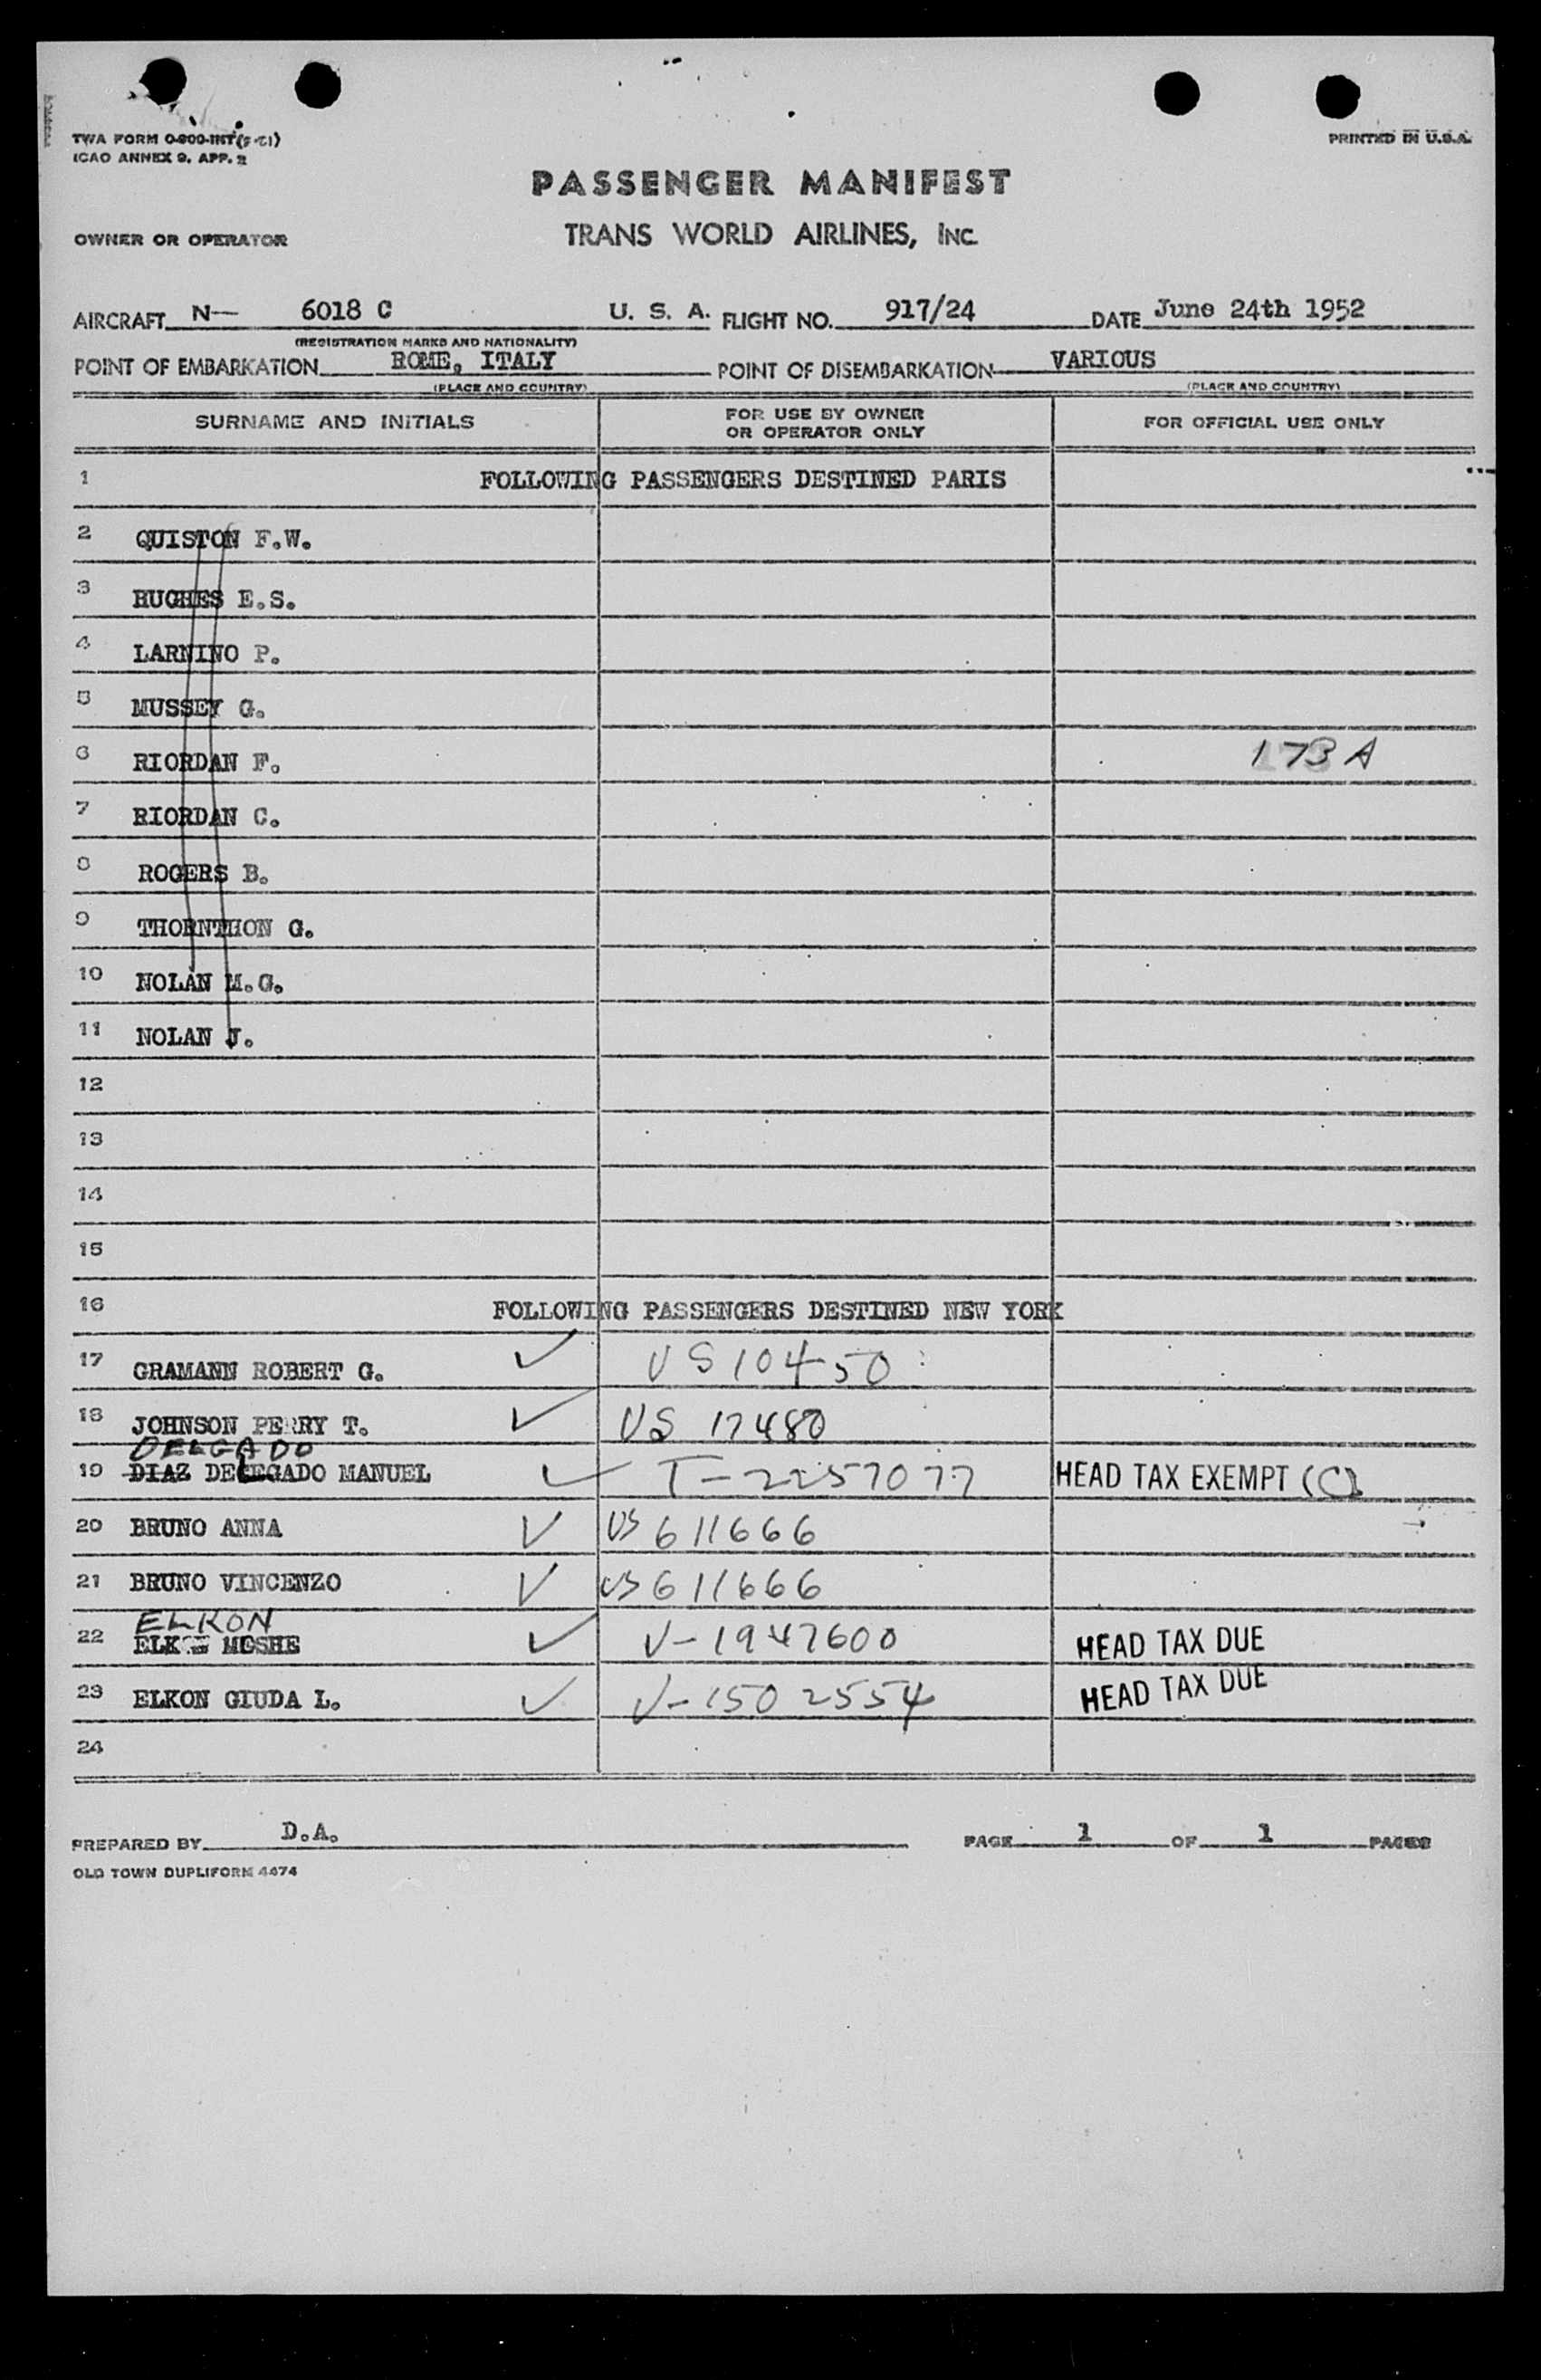 TWA FORM O-800-INT
ICAO ANNEX 9. APP. 2
PRINTED IN U.S.A.
PASSENGER MANIFEST
OWNER OR OPERATOR
TRANS WORLD AIRLINES, INC.
AIRCRAFT N— 6018 C U. S. A. FLIGHT NO. 917/24 DATE June 24th 1952
(REGISTRATION MARKS AND NATIONALITY)
POINT OF EMBARKATION ROME, ITALY POINT OF DISEMBARKATION VARIOUS
(PLACE AND COUNTRY) (PLACE AND COUNTRY)
SURNAME AND INITIALS FOR USE BY OWNER OR OPERATOR ONLY FOR OFFICIAL USE ONLY
1 FOLLOWING PASSENGERS DESTINED PARIS
2 QUISTON F.W.
3 HUGHES E.S.
4 LARNINO P.
5 MUSSEY G.
6 RIORDAN F. 173 A
7 RIORDAN C.
8 ROGERS B.
9 THORNTHON G.
10 NOLAN M.G.
11 NOLAN J.
12
13
14
15
16 FOLLOWING PASSENGERS DESTINED NEW YORK
17 GRAMANN ROBERT G. ✓ US 10450
18 JOHNSON PERRY T. ✓ US 17480
DELGADO
19 DIAZ DELEGADO MANUEL ✓ T-2257077 HEAD TAX EXEMPT (C)
20 BRUNO ANNA ✓ US 611666
21 BRUNO VINCENZO ✓ US 611666
ELKON
22 MOSHE ✓ V-1947600 HEAD TAX DUE
23 ELKON GIUDA L. ✓ V-1502554 HEAD TAX DUE
24
PREPARED BY D.A. PAGE 1 OF 1 PAGES
OLD TOWN DUPLIFORM 4474